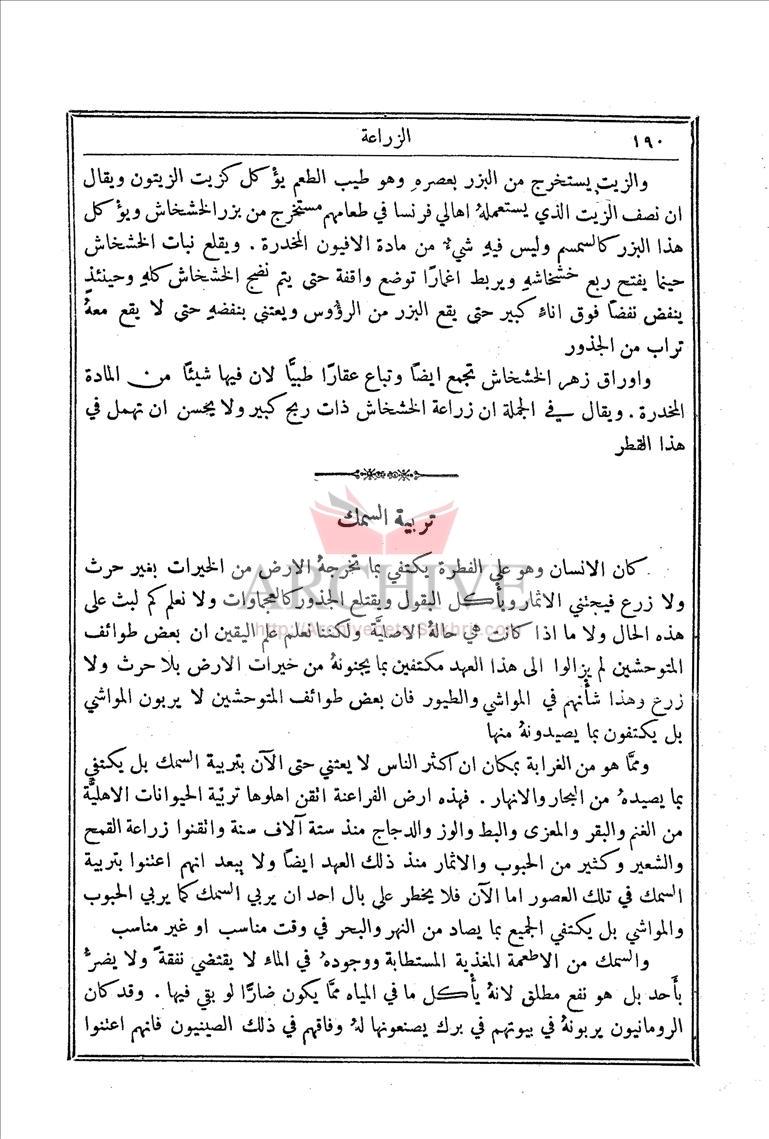 ١٩٠
الزراعة
والزيت يستخرج من البزر بعصرهِ وهو طيب الطعم يؤكل كزيت الزيتون ويقال
ان نصف الزيت الذي يستعملهُ اهالي فرنسا في طعامهم مستخرج من بزر الخشخاش ويؤكل
هذا البزر كالسمسم وليس فيهِ شيءٌ من مادة الافيون المخدرة . ويقلع نبات الخشخاش
حينما يفتح ربع خشخاشهِ ويربط اغمارًا توضع واقفة حتى يتم نضج الخشخاش كلهِ وحينئذٍ
ينفض نفضًا فوق اناءٍ كبير حتى يقع البزر من الرؤوس ويعتنى بنفضهِ حتى لا يقع معهُ
تراب من الجذور
واوراق زهر الخشخاش تجمع ايضًا وتباع عقارًا طبيًّا لان فيها شيئًا من المادة
المخدرة . ويقال في الجملة ان زراعة الخشخاش ذات ربح كبير ولا يحسن ان تهمل في
هذا القطر
تربية السمك
كان الانسان وهو على الفطرة يكتفي بما تخرجهُ الارض من الخيرات بغير حرث
ولا زرع فيجتني الاثمار ويأكل البقول ويقتلع الجذور كالعجماوات ولا نعلم كم لبث على
هذه الحال ولا ما اذا كانت هي حالة الاصليَّة ولكننا نعلم علم اليقين ان بعض طوائف
المتوحشين لم يزالوا الى هذا العهد مكتفين بما يجنونهُ من خيرات الارض بلا حرث ولا
زرع وهذا شأنهم في المواشي والطيور فان بعض طوائف المتوحشين لا يربون المواشي
بل يكتفون بما يصيدونهُ منها
وممَّا هو من الغرابة بمكان ان اكثر الناس لا يعتني حتى الآن بتربية السمك بل يكتفي
بما يصيدهُ من البحار والانهار . فهذه ارض الفراعنة اتقن اهلوها تربية الحيوانات الاهليَّة
من الغنم والبقر والمعزى والبط والوز والدجاج منذ ستة آلاف سنة واتقنوا زراعة القمح
والشعير وكثير من الحبوب والاثمار منذ ذلك العهد ايضًا ولا يبعد انهم اعتنوا بتربية
السمك في تلك العصور اما الآن فلا يخطر على بال احد ان يربي السمك كما يربي الحبوب
والمواشي بل يكتفي الجميع بما يصاد من النهر والبحر في وقت مناسب او غير مناسب
والسمك من الاطعمة المغذية المستطابة ووجودهُ في الماء لا يقتضي نفقةً ولا يضرُّ
بأحد بل هو نفع مطلق لانهُ يأكل ما في المياه ممَّا يكون ضارًّا لو بقي فيها . وقد كان
الرومانيون يربونهُ في بيوتهم في برك يصنعونها لهُ وفاقهم في ذلك الصينيون فانهم اعتنوا
ARCHIVE
http://Archivebeta.Sakhrit.com